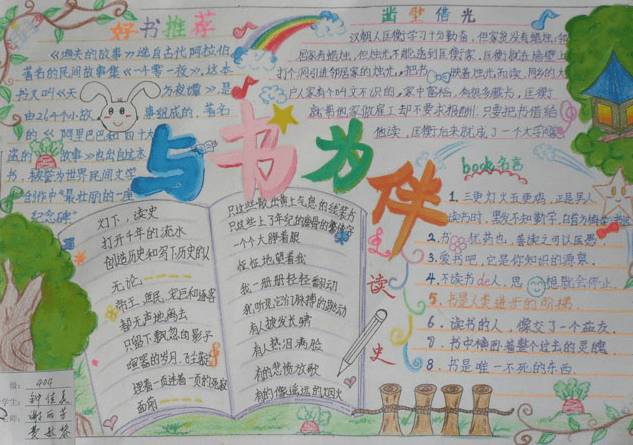 好书推荐
《渔夫的故事》选自古代阿拉伯
著名的民间故事集《一千零一夜》,这本
书又叫《天方夜谭》,是
由264个小故事组成的,著名
的《阿里巴巴和四十大
盗的故事》也出自这本
书,被誉为世界民间文学
创作中“最壮丽的一座
纪念碑”
凿壁借光
汉朝人匡衡学习十分勤奋,但家贫没有蜡烛,邻
居家有蜡烛,但烛光不能透到匡衡家,匡衡就在墙壁上
打个洞引进邻居家的烛光,把书映着烛光而读,同乡的大
户人家有个叫文不识的,家中富裕,有很多藏书,匡衡
就帮他家做雇工却不要求报酬,只要把书借给
他读,匡衡后来就成了一个大学
与书为伴
灯下,读史
打开千年的流水
创造历史和写下历史的人
无论
帝王、庶民、宠臣和逐客
都无声地离去
只留下飘忽的影子
喧嚣的岁月,飞尘散
踩着一页连着一页的
面前
只这些散出黄土气息的线装书
一个个睁着眼
怔怔地望着我
我一册册轻轻翻动
我听见它们脉搏的跳动
有人披发长啸
有人热泪满脸
有的悲愤放歌
有的像遥远的烟火
读
史
book名言
1.三更灯火五更鸡,正是男人
读书时,黑发不知勤学早,白首方悔读书迟
2.书犹药也,善读之可以医愚
3.爱书吧,它是你知识的源泉.
4.不读书de人,思想就会停止.
5.书是人类进步的阶梯.
6.读书的人,像交了一个益友.
7.书中横卧着整个过去的灵魂.
8.书是唯一不死的东西.
级:404
学生:钟佳